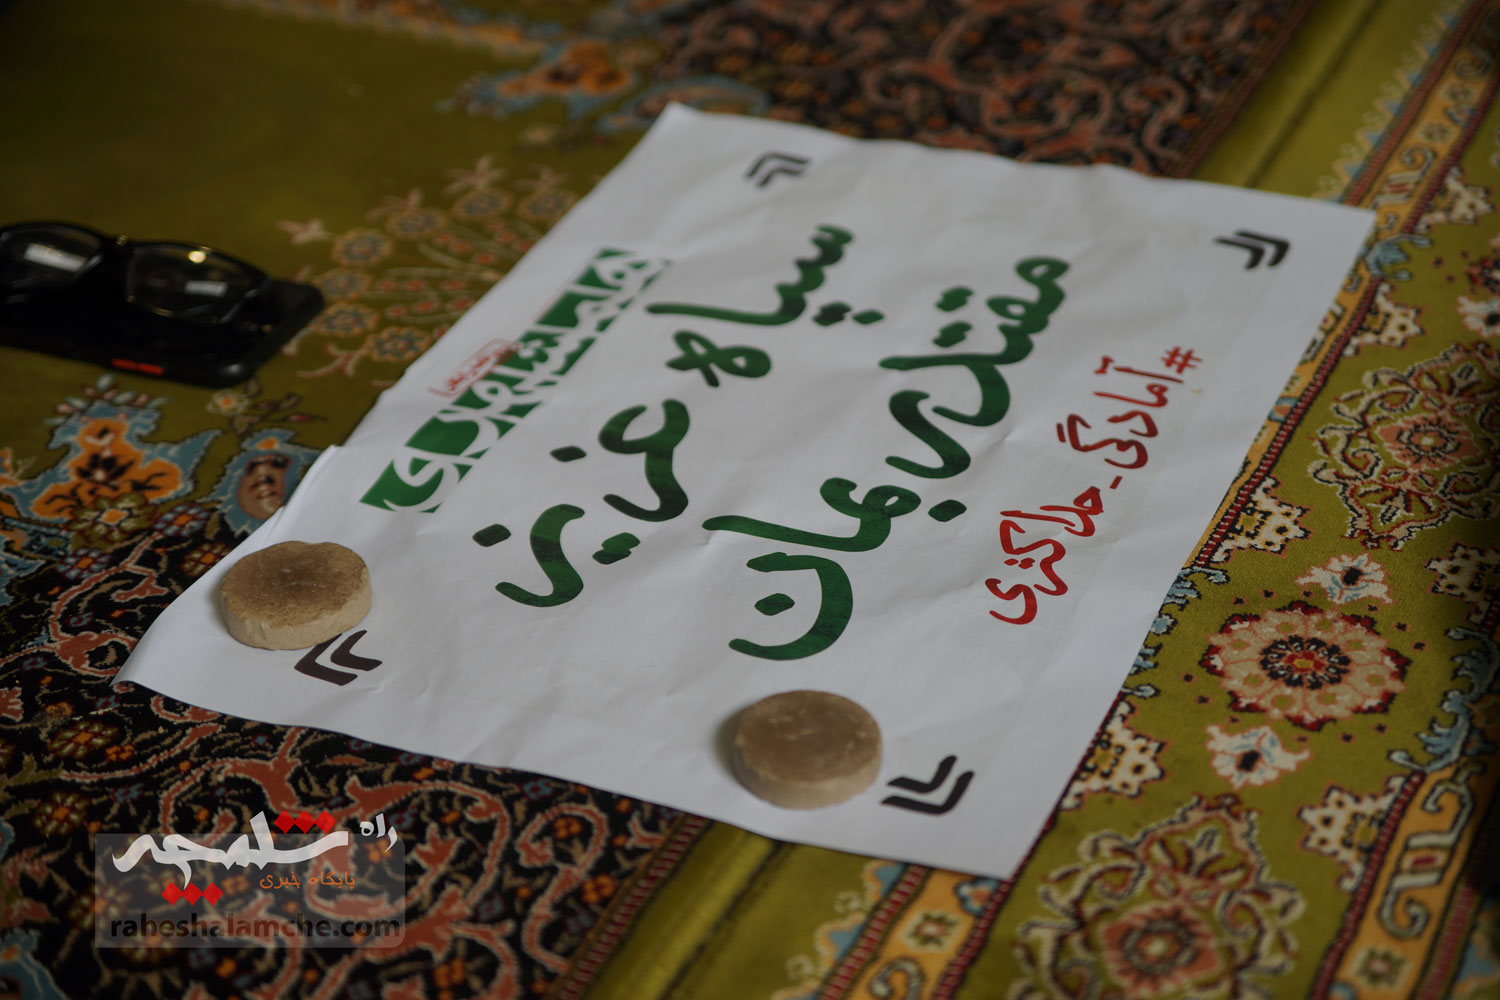 سپاه عزیز
مقتدر بمان
#آمادگی_حداکثری
راه شلمچه
پایگاه خبری
raheshalamche.com